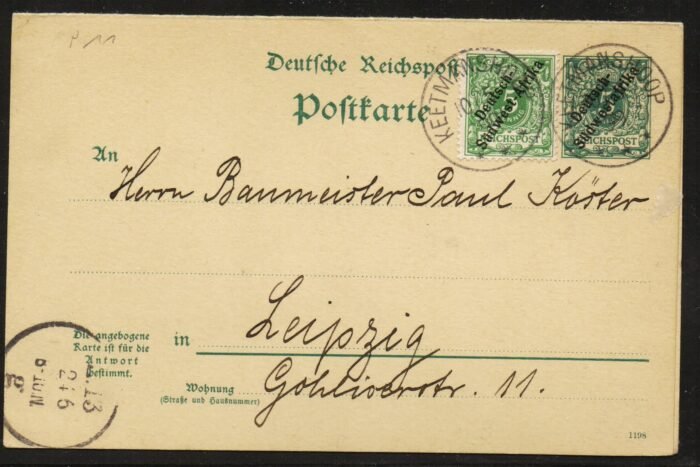 P 11
Deutsche Reichspost
Postkarte
KEETMANSHOOP
10
Deutsch-
Südwest-Afrika
REICHSPOST
KEETMANSHOOP
Deutsch-
Südwestafrika
REICHSPOST
An
Herrn Baumeister Paul Köster
in Leipzig
Die angebogene
Karte ist für die
Antwort
bestimmt.
Wohnung
(Straße und Hausnummer)
Gohliserstr. 11.
13
1198